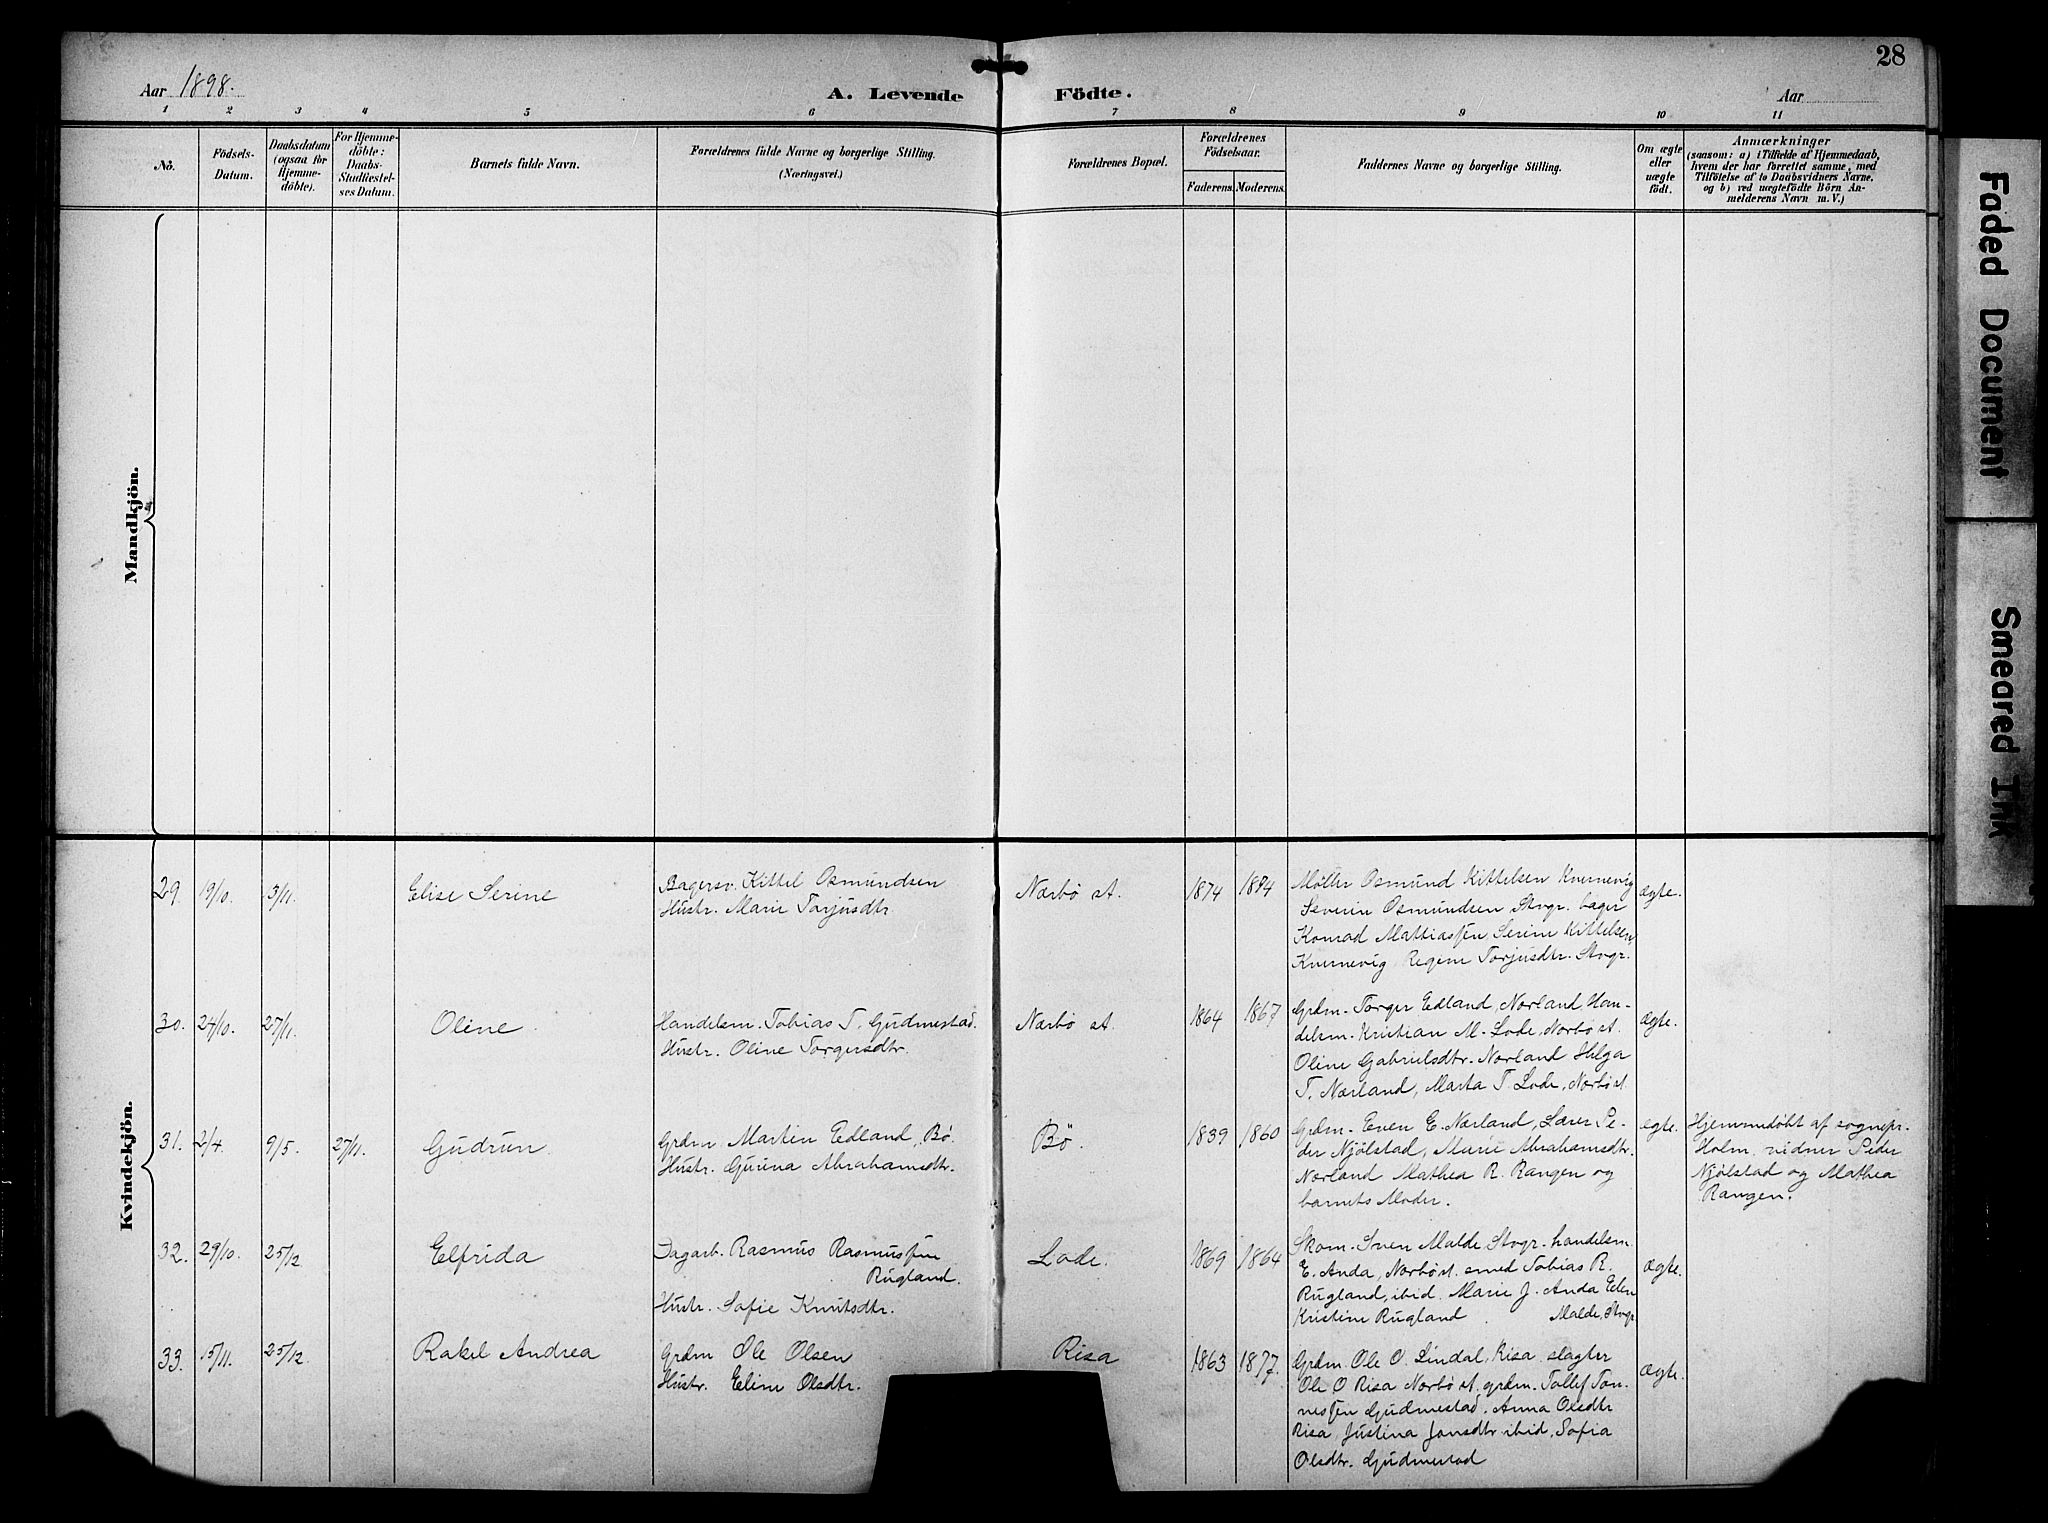 28
Aar 1898.
A. Levende Födte.
Aar
1 2 3 4 5 6 7 8 9 10 11
No.
Födsels-
Datum.
Daabsdatum
(ogsaa for
Hjemme-
döbte).
For Hjemme-
döbte:
Daabs-
Stadfæstel-
ses Datum.
Barnets fulde Navn.
Forældrenes fulde Navne og borgerlige Stilling.
(Næringsvei.)
Forældrenes Bopæl.
Forældrenes
Födselsaar.
Faderens. Moderens.
Faddernes Navne og borgerlige Stilling.
Om ægte
eller
uægte
födt.
Anmærkninger
(saasom: a) i Tilfælde af Hjemmedaab,
hvem der har forrettet samme, med
Tilföielse af to Daabsvidners Navne,
og b) ved uægtefödte Börn An-
melderens Navn m. V.)
Mandkjön.
Kvindekjön.
29. 19/10. 13/11.
Elise Serine
Bagersv. Kittel Osmundsen
Hustr. Marie Torjusdtr.
Nærbø st.
1874
Møller Osmund Kittelsen Kvernevig
Severin Osmundsen Stvgr. bager
Konrad Mattiassen, Serine Kittelsen
Kvernevig Regine Torjusdtr. Stvgr.
ægte.
30. 24/10. 27/11.
Oline
Handelsm. Tobias T. Gudmestad.
Hustr. Oline Torgersdtr.
Nærbø st.
1864 1867
Grdm. Torger Edland, Nærland Han-
delsm. Kristian M. Lode, Nærbø st.
Oline Gabrielsdtr. Nærland Helga
T. Nærland, Marta T. Lode, Nærbø st.
ægte.
31. 2/4 9/5. 27/11.
Gudrun
Grdm. Martin Edland, Bø.
Hustr. Gurina Abrahamsdtr.
Bø.
1839 1860
Grdm. Even E. Nærland, Lærer Pe-
der Njølstad, Marie Abrahamsdtr.
Nærland Mathea R. Rangen og
barnets Moder.
ægte.
Hjemmedøbt af sognepr.
Holm. vidner Peder
Njølstad og Mathea
Rangen.
32. 29/10. 25/12
Elfrida
Dagarb. Rasmus Rasmussen
Rugland.
Hustr. Sofie Knutsdtr.
Lode.
1869 1864
Skom. Sven Malde, Stvgr. handelsm.
E. Anda, Nærbø st. smed Tobias R.
Rugland, ibid. Marie J. Anda Elen
Kristine Rugland. Malde, Stvgr
ægte.
33. 15/11. 25/12.
Rakel Andrea
Grdm Ole Olsen
Hustr. Eline Olsdtr.
Risa
1863 1877.
Grdm. Ole O. Lindal, Risa, slagter
Ole O Risa Nærbø st. grdm. Tollef Tøn-
nessen Gudmestad. Anna Olsdtr
Risa, Justina Jonsdtr ibid, Sofia
Olsdtr. Gudmestad
ægte.
Faded Document
Smeared Ink